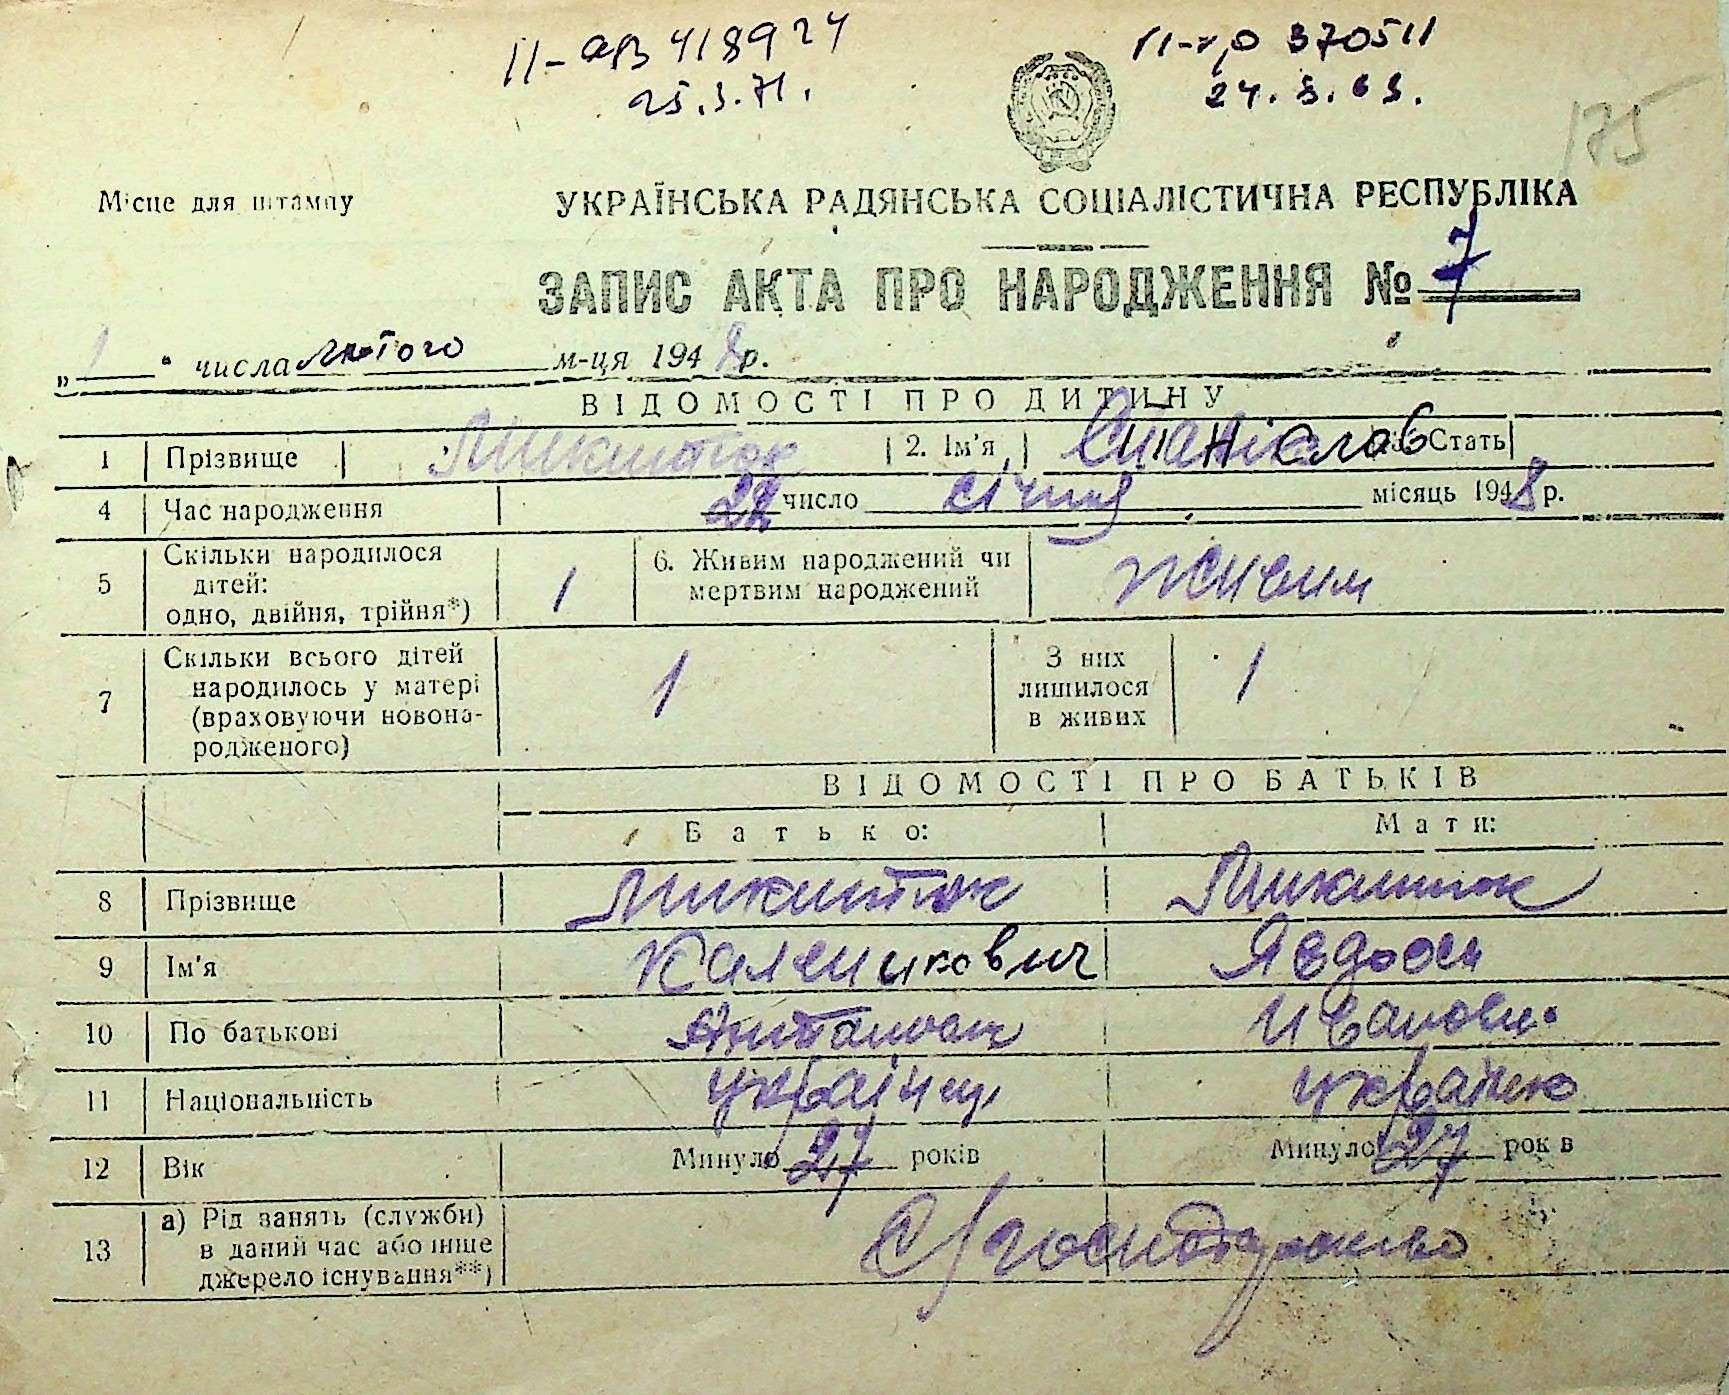 ІІ-АВ 418924
25.3.71.
370511
175
Місце для штампу
УКРАЇНСЬКА РАДЯНСЬКА СОЦІАЛІСТИЧНА РЕСПУБЛІКА
ЗАПИС АКТА ПРО НАРОДЖЕННЯ № 7
„ 1 “ числа лютого м-ця 1948 р.
ВІДОМОСТІ ПРО ДИТИНУ
1 Прізвище Микитюк 2. Ім'я Станіслав 3. Стать
4 Час народження 22 число січня місяць 1948 р.
5 Скільки народилося дітей: одно, двійня, трійня*) 1 6. Живим народжений чи мертвим народжений живим
7 Скільки всього дітей народилось у матері (враховуючи новонародженого) 1 З них лишилося в живих 1
ВІДОМОСТІ ПРО БАТЬКІВ
Батько: Мати:
8 Прізвище Микитюк Микитюк
9 Ім'я Каленикович Явдося
10 По батькові Івановна
11 Національність українец українка
12 Вік Минуло 27 років Минуло 27 років
13 а) Рід занять (служби) в даний час або інше джерело існування**) С/господарство